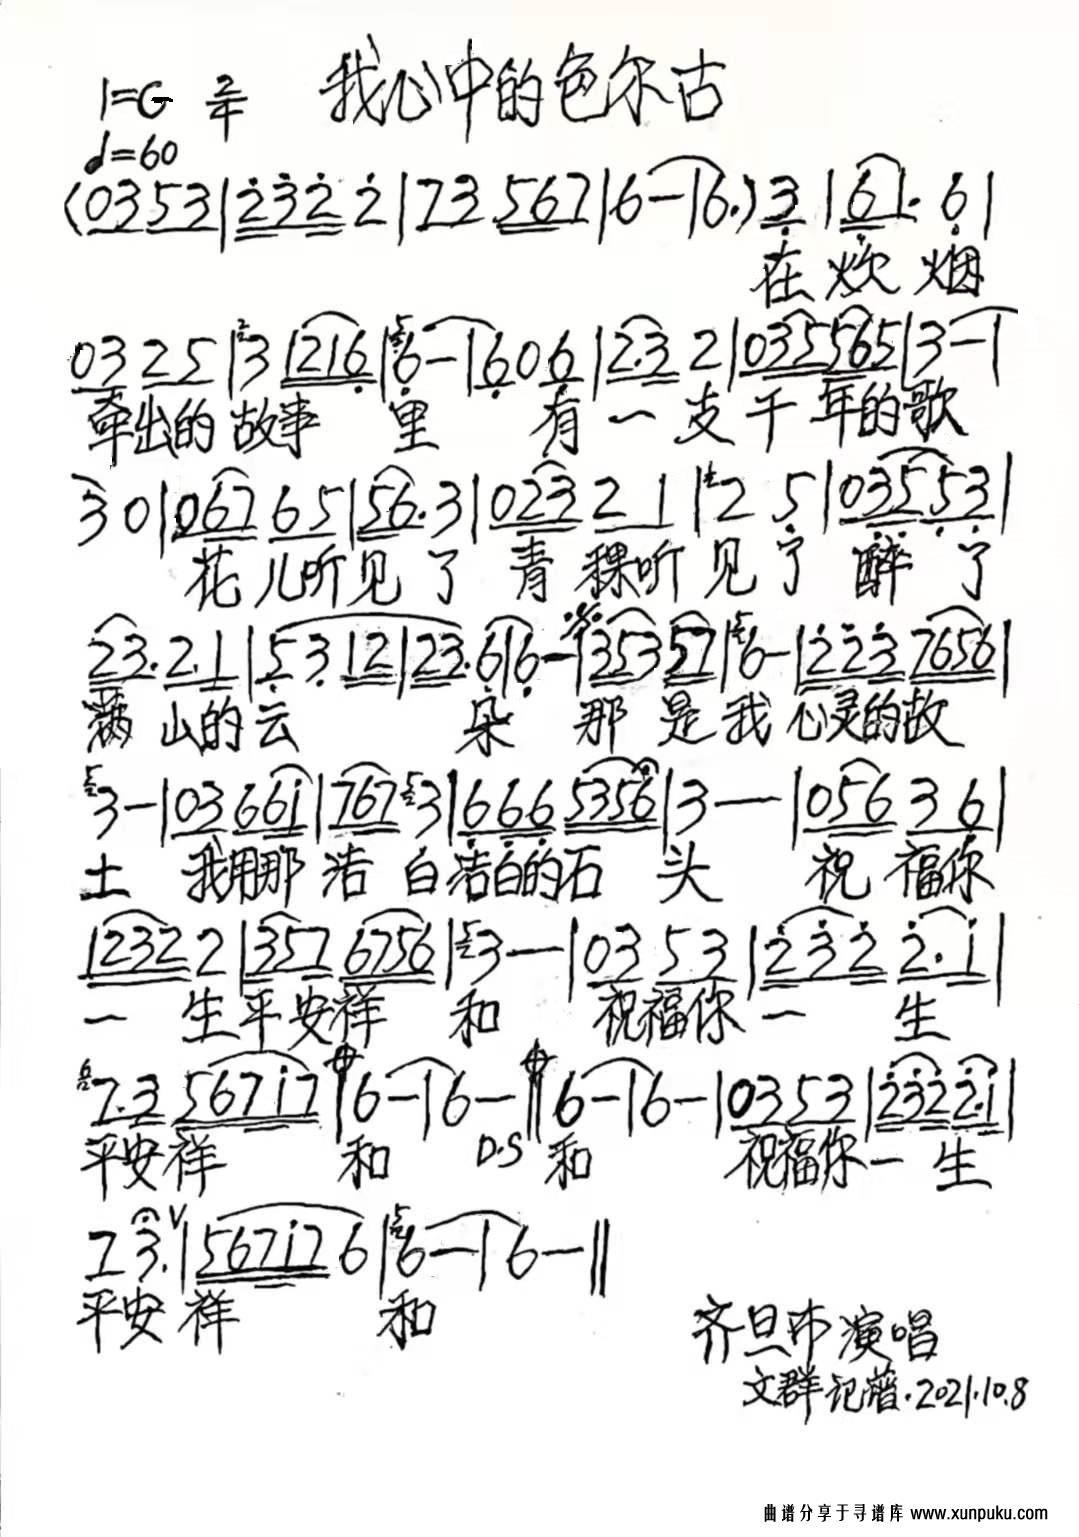 我心中的色尔古
1=G 2/4
♩=60
(0353|2322 2|73 567|6-|6.)3|6|. 6|
在炊烟
03 25|3 1216|6-|606|2.3 2|035565|3-|
牵出的故事 里 有一支千年的歌
30|067 65|56.3|023 2 1|2 5|035 53|
花儿听见了 青稞听见了 醉了
23. 2.1|53 12|23.6|6-|353 57|6-|223 7656|
满山的云 朵 那是我心灵的故
3-|03 661|767 3|666 5356|3--|056 36|
土 我用那洁白洁白的石头 祝福你
1232 2|357 6756|3-|03 53|232 2.1|
一生平安祥和 祝福你一生
7.3 56717|6-|6-||6-|6-|0353|2322.1|
平安祥 和 D.S 和 祝福你一生
7 3. V|56717 6|6-|6-||
平安祥 和
齐旦布演唱
文群记谱.2021.10.8
曲谱分享于寻谱库 www.xunpuku.com